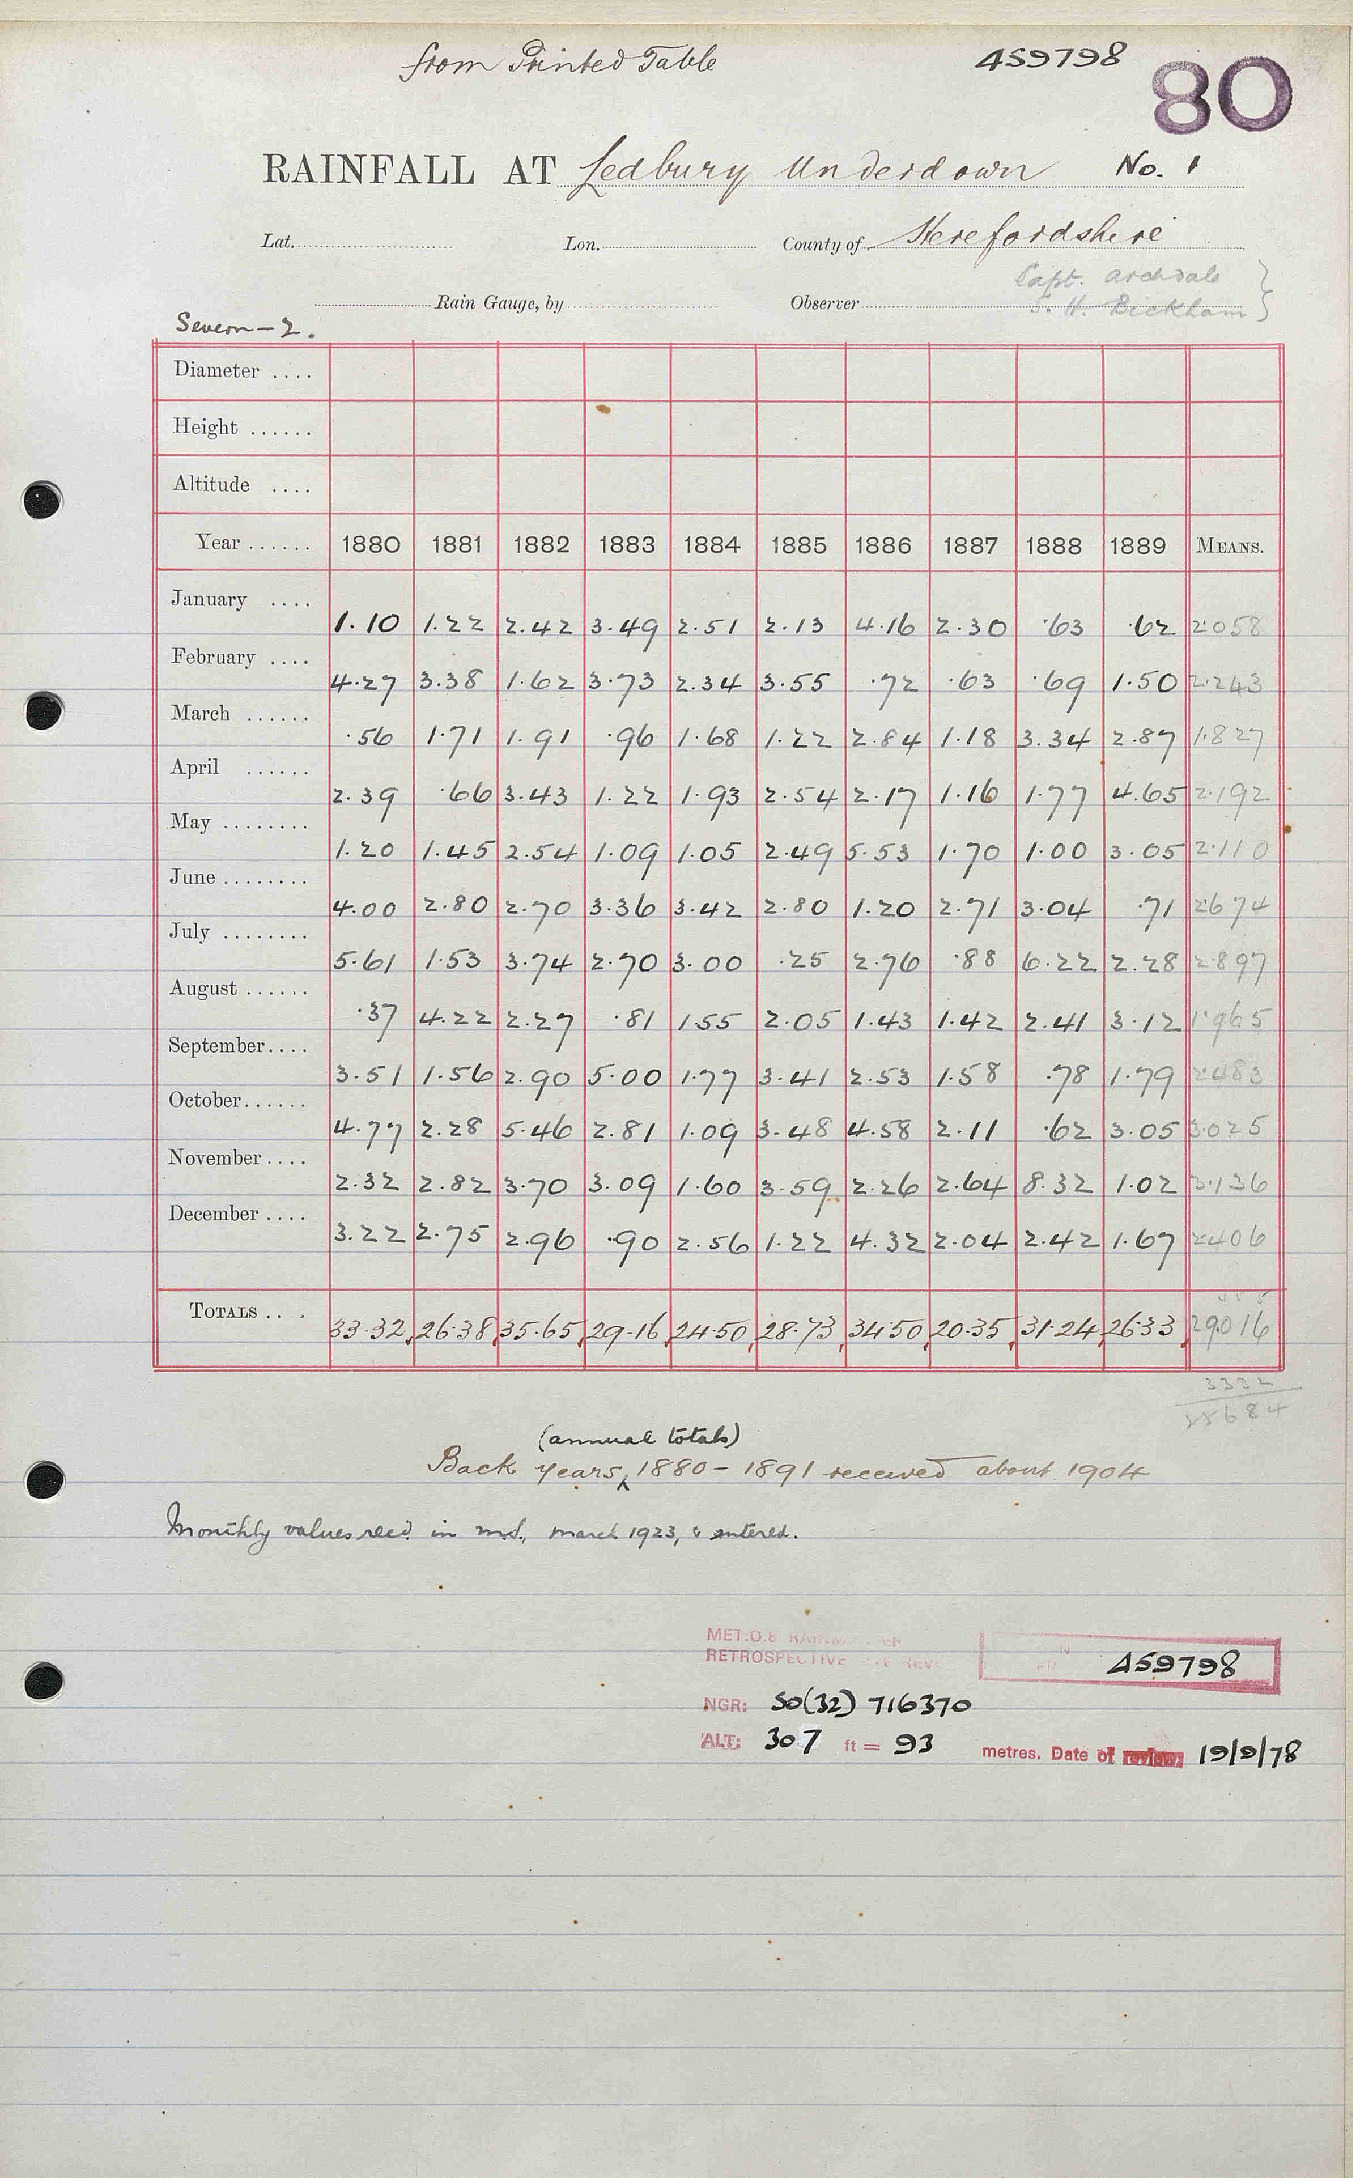 from Printed Table 459798 80
RAINFALL AT Ledbury Underdown No. 1
Lat. Lon. County of Herefordshire
Capt. Archdale
Rain Gauge, by Observer S. H. Bickham
Severn-2.
Diameter ....
Height ......
Altitude ....
Year ...... 1880 1881 1882 1883 1884 1885 1886 1887 1888 1889 MEANS.
January .... 1.10 1.22 2.42 3.49 2.51 2.13 4.16 2.30 .63 .62 2.058
February .... 4.27 3.38 1.62 3.73 2.34 3.55 .72 .63 .69 1.50 2.243
March ...... .56 1.71 1.91 .96 1.68 1.22 2.84 1.18 3.34 2.87 1.827
April ...... 2.39 .66 3.43 1.22 1.93 2.54 2.17 1.16 1.77 4.65 2.192
May ........ 1.20 1.45 2.54 1.09 1.05 2.49 5.53 1.70 1.00 3.05 2.110
June ........ 4.00 2.80 2.70 3.36 3.42 2.80 1.20 2.71 3.04 .71 2.674
July ........ 5.61 1.53 3.74 2.70 3.00 .25 2.76 .88 6.22 2.28 2.897
August ...... .37 4.22 2.27 .81 1.55 2.05 1.43 1.42 2.41 3.12 1.965
September.... 3.51 1.56 2.90 5.00 1.77 3.41 2.53 1.58 .78 1.79 2.483
October...... 4.77 2.28 5.46 2.81 1.09 3.48 4.58 2.11 .62 3.05 3.025
November .... 2.32 2.82 3.70 3.09 1.60 3.59 2.26 2.64 8.32 1.02 3.136
December .... 3.22 2.75 2.96 .90 2.56 1.22 4.32 2.04 2.42 1.67 2.406
TOTALS .... 33.32 26.38 35.65 29.16 24.50 28.73 34.50 20.35 31.24 26.33 29.016
3332
25684
(annual totals)
Back years, 1880-1891 received about 1904
Monthly values recd. in ms., March 1923, & entered.
MET.O.8
RETROSPECTIVE
459798
NGR: SO(32) 716370
ALT: 307 ft = 93 metres. Date of review 19/9/78